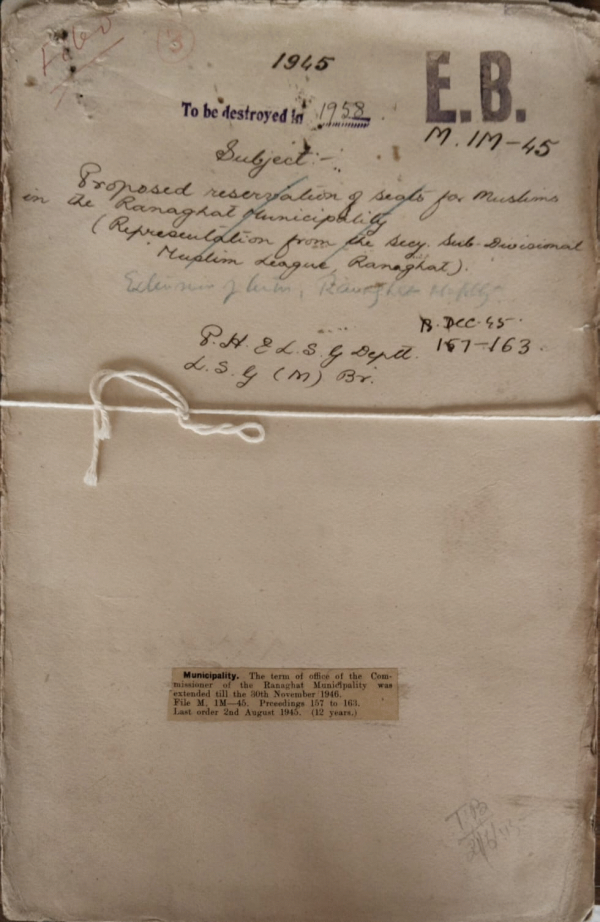 1945
E.B.
To be destroyed in 1958
M. 1M-45
Subject:-
Proposed reservation of seats for Muslims
in the Ranaghat Municipality
(Representation from the Secy. Sub-Divisional
Muslim League, Ranaghat).
Extension of term, Ranaghat
B. DEC-45.
P.H. & L.S.G Deptt. 157-163.
L.S.G (M) Br.
Municipality. The term of office of the Com-
missioner of the Ranaghat Municipality was
extended till the 30th November 1946.
File M. 1M—45. Proceedings 157 to 163.
Last order 2nd August 1945. (12 years.)